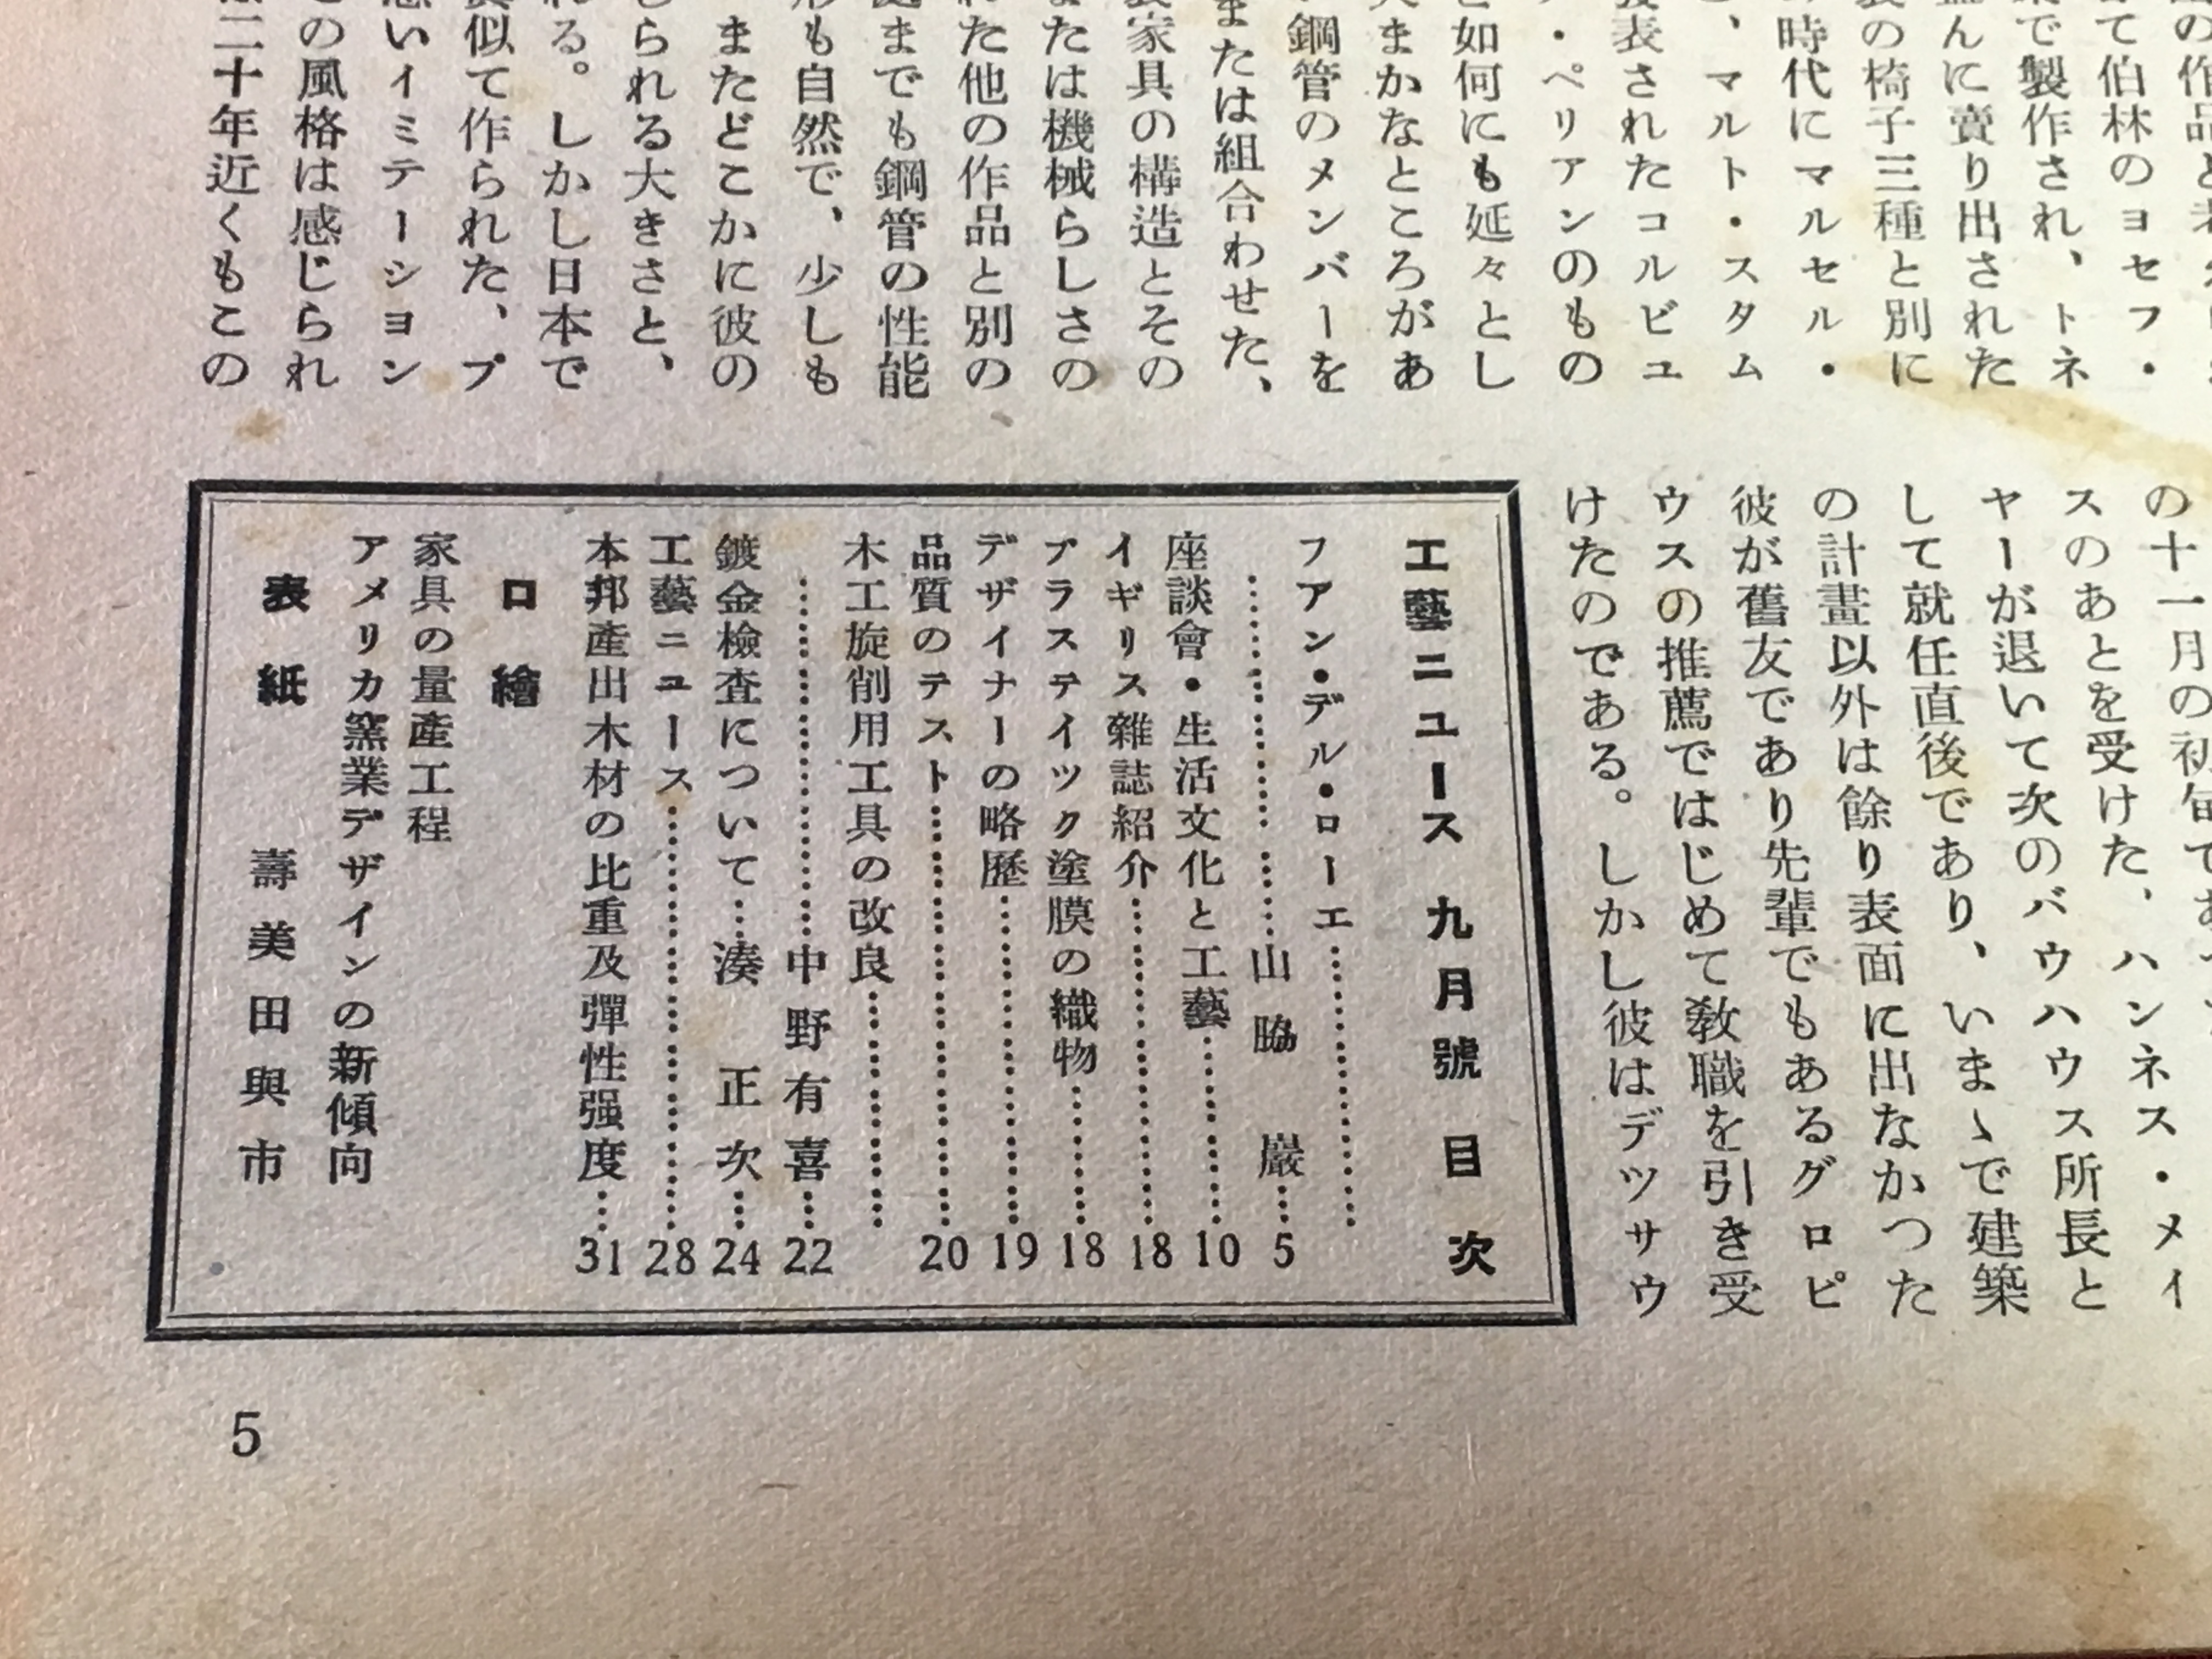 の作品と
て伯林のヨセフ・
で製作され、トネ
んに賣り出された
の椅子三種と別に
時代にマルセル・
、マルト・スタム
表されたコルビュ
・ペリアンのもの
如何にも延々とし
まかなところがあ
鋼管のメンバーを
または組合わせた、
家具の構造とその
たは機械らしさの
た他の作品と別の
までも鋼管の性能
も自然で、少しも
またどこかに彼の
られる大きさと、
る。しかし日本で
似て作られた、プ
いイミテーション
の風格は感じられ
二十年近くもこの
の十一月の初旬で
スのあとを受けた、ハンネス・メイ
ヤーが退いて次のバウハウス所長と
して就任直後であり、いまゝで建築
の計畫以外は餘り表面に出なかつた
彼が舊友であり先輩でもあるグロピ
ウスの推薦ではじめて教職を引き受
けたのである。しかし彼はデツサウ
工藝ニユース 九月號 目次
フアン・デル・ローエ……………
……………山脇 巖……5
座談會・生活文化と工藝……………10
イギリス雜誌紹介……………18
プラステイツク塗膜の織物……………18
デザイナーの略歷……………19
品質のテスト……………20
木工旋削用工具の改良……………
……………中野有喜……22
鍍金檢査について……湊 正次……24
工藝ニユース……………28
本邦產出木材の比重及彈性强度……31
口繪
家具の量產工程
アメリカ窯業デザインの新傾向
表紙 壽美田與市
5